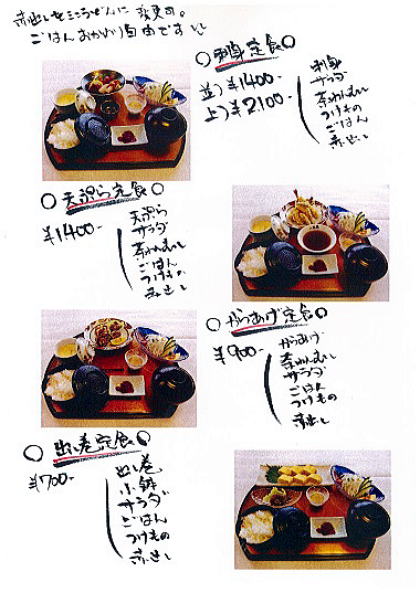 赤出しをミニうどんに変更可。
ごはんおかわり自由です
○刺身定食○
並)¥1400-
上)¥2,100-
刺身
サラダ
茶わんむし
つけもの
ごはん
赤出し
○天ぷら定食○
¥1400-
天ぷら
サラダ
茶わんむし
ごはん
つけもの
赤出し
○からあげ定食○
¥900-
からあげ
茶わんむし
サラダ
ごはん
つけもの
赤出し
○出し巻定食○
¥700-
出し巻
小鉢
サラダ
ごはん
つけもの
赤出し